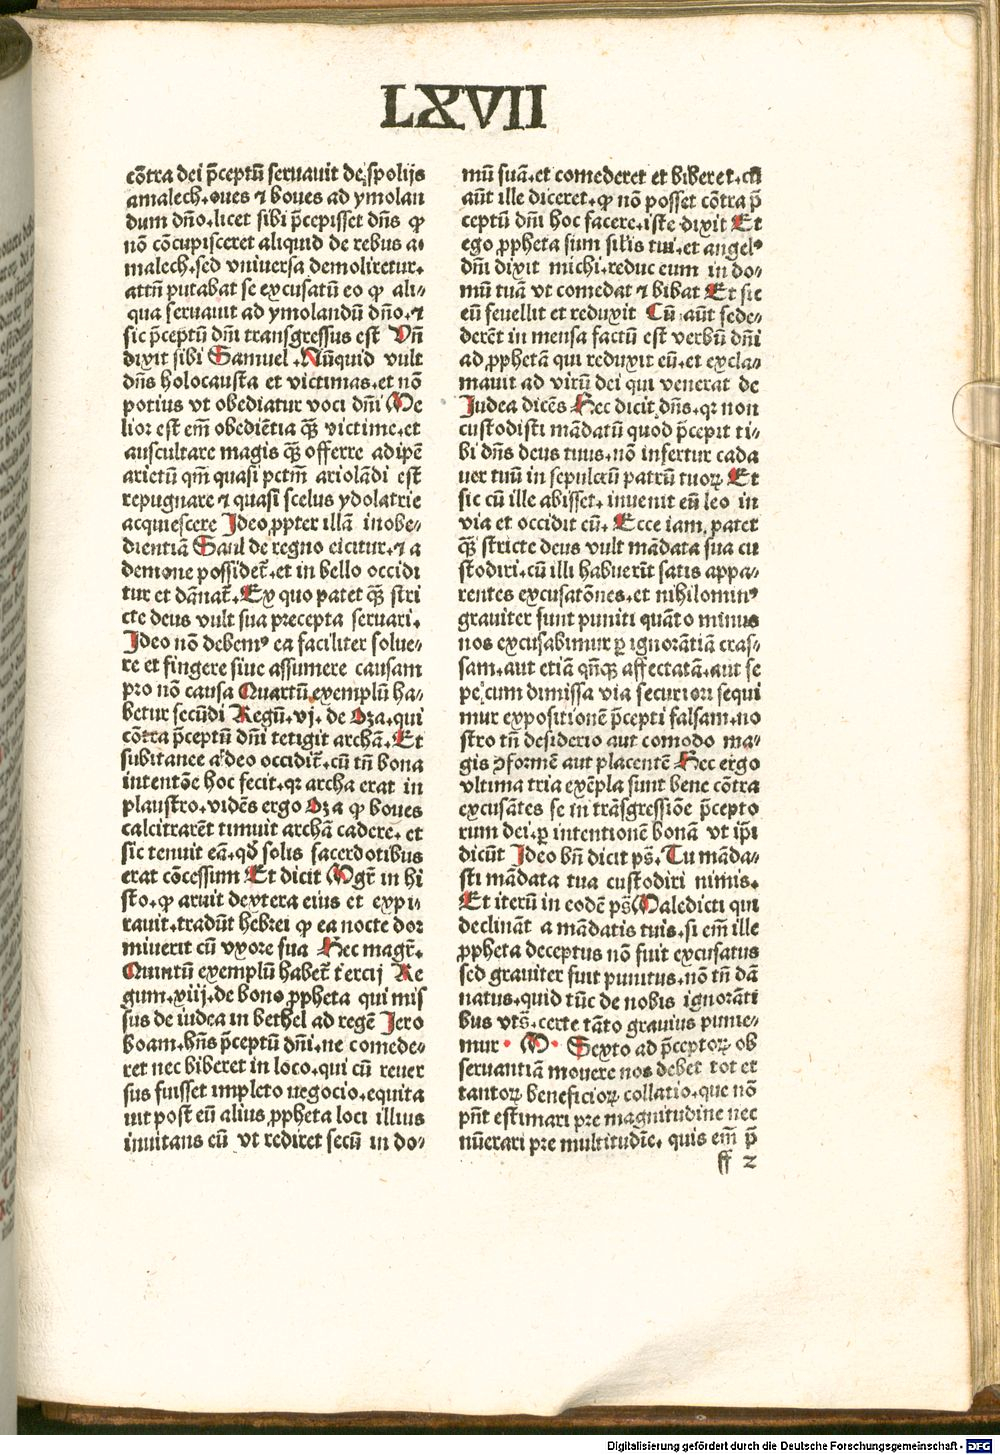 LXVII
cōtra dei p̄ceptū seruauit de spolijs
amalech. oues ⁊ boues ad ymolan
dum dn̄o. licet sibi p̄cepisset dn̄s ꝙ
nō cōcupisceret aliquid de rebus a⸗
malech. sed vniuersa demoliretur.
attn̄ putabat se excusatū eo ꝙ ali⸗
qua seruauit ad ymolandū dn̄o. ⁊
sic p̄ceptū dn̄i transgressus est Vn̄
dixit sibi Samuel. Nūquid vult
dn̄s holocausta et victimas. et nō
potius vt obediatur voci dn̄i Me
lior est em̄ obediētia qȝ̄ victime. et
auscultare magis qȝ̄ offerre adipē
arietū qm̄ quasi pctm̄ ariolādi est
repugnare ⁊ quasi scelus ydolatrie
acquiescere Ideo ꝓpter illā inobe⸗
dientiā Saul de regno eicitur. ⁊ a
demone possidet̄. et in bello occidi
tur et dānat̄. Ex quo patet qȝ̄ stri
cte deus vult sua precepta seruari.
Ideo nō debemꝰ ea faciliter solue⸗
re et fingere siue assumere causam
pro nō causa Quartū exemplū ha⸗
betur secūdi Regū. vj. de Oza. qui
cōtra p̄ceptū dn̄i tetigit archā. Et
subitanee adeo occidit̄. cū tn̄ bona
intentōe hoc fecit. qꝛ archa erat in
plaustro. vidēs ergo Oza ꝙ boues
calcitrarēt timuit archā cadere. et
sic tenuit eā. qd̄ solis sacerdotibus
erat cōcessum Et dicit Mgr̄ in hi
sto. ꝙ aruit dextera eius et expi⸗
rauit. tradūt hebrei ꝙ ea nocte dor
miuerit cū vxore sua Hec magr̄.
Quintū exemplū habet̄ tercij Re
gum. xiij. de bono ꝓpheta qui mis
sus de iudea in bethel ad regē Jero
boam. hn̄s p̄ceptū dn̄i. ne comede⸗
ret nec biberet in loco. qui cū reuer
sus fuisset impleto negocio. equita
uit post eū alius ꝓpheta loci illius
inuitans eū vt rediret secū in do⸗
mū suā. et comederet et biberet. cū
aūt ille diceret. ꝙ nō posset cōtra p̄
ceptū dn̄i hoc facere. iste dixit Et
ego ꝓpheta sum silis tui. et angelꝰ
dn̄i dixit michi. reduc eum in do⸗
mū tuā vt comedat ⁊ bibat Et sic
eū fefellit et reduxit Cū aūt sede⸗
derēt in mensa factū est verbū dn̄i
ad ꝓphetā qui reduxit eū. et excla⸗
mauit ad virū dei qui venerat de
Judea dicēs Hec dicit dn̄s. qꝛ non
custodisti mādatū quod p̄cepit ti⸗
bi dn̄s deus tuus. nō infertur cada
uer tuū in sepulcrū patrū tuoꝝ Et
sic cū ille abisset. inuenit eū leo in
via et occidit eū. Ecce iam patet
qȝ̄ stricte deus vult mādata sua cu
stodiri. cū illi habuerīt satis appa⸗
rentes excusatōnes. et nihilominꝰ
grauiter sunt puniti quāto minus
nos excusabimur ꝑ ignorātiā cras⸗
sam. aut etiā qn̄qȝ affectatā. aut se
pe; cum dimissa via securiori sequi
mur expositionē p̄cepti falsam. no
stro tn̄ desiderio aut comodo ma⸗
gis ↄformē aut placentē Hec ergo
vltima tria exēpla sunt bene cōtra
excusātes se in trāsgressiōe p̄cepto
rum dei. ꝑ intentionē bonā vt ip̄i
dicūt Ideo bn̄ dicit ps̄. Tu māda⸗
sti mādata tua custodiri nimis.
Et iterū in eodē ps̄ Maledicti qui
declināt a mādatis tuis. si em̄ ille
ꝓpheta deceptus nō fuit excusatus
sed grauiter fuit punitus. nō tn̄ dā
natus. quid tūc de nobis ignorāti
bus vtȝ. certe tāto grauius punie⸗
mur. M. Sexto ad p̄ceptoꝝ ob
seruantiā mouere nos debet tot et
tantoꝝ beneficioꝝ collatio. que nō
pn̄t estimari pre magnitudine nec
nūerari pre multitudīe. quis em̄ p̄
ff 2
Digitalisierung gefördert durch die Deutsche Forschungsgemeinschaft - DFG